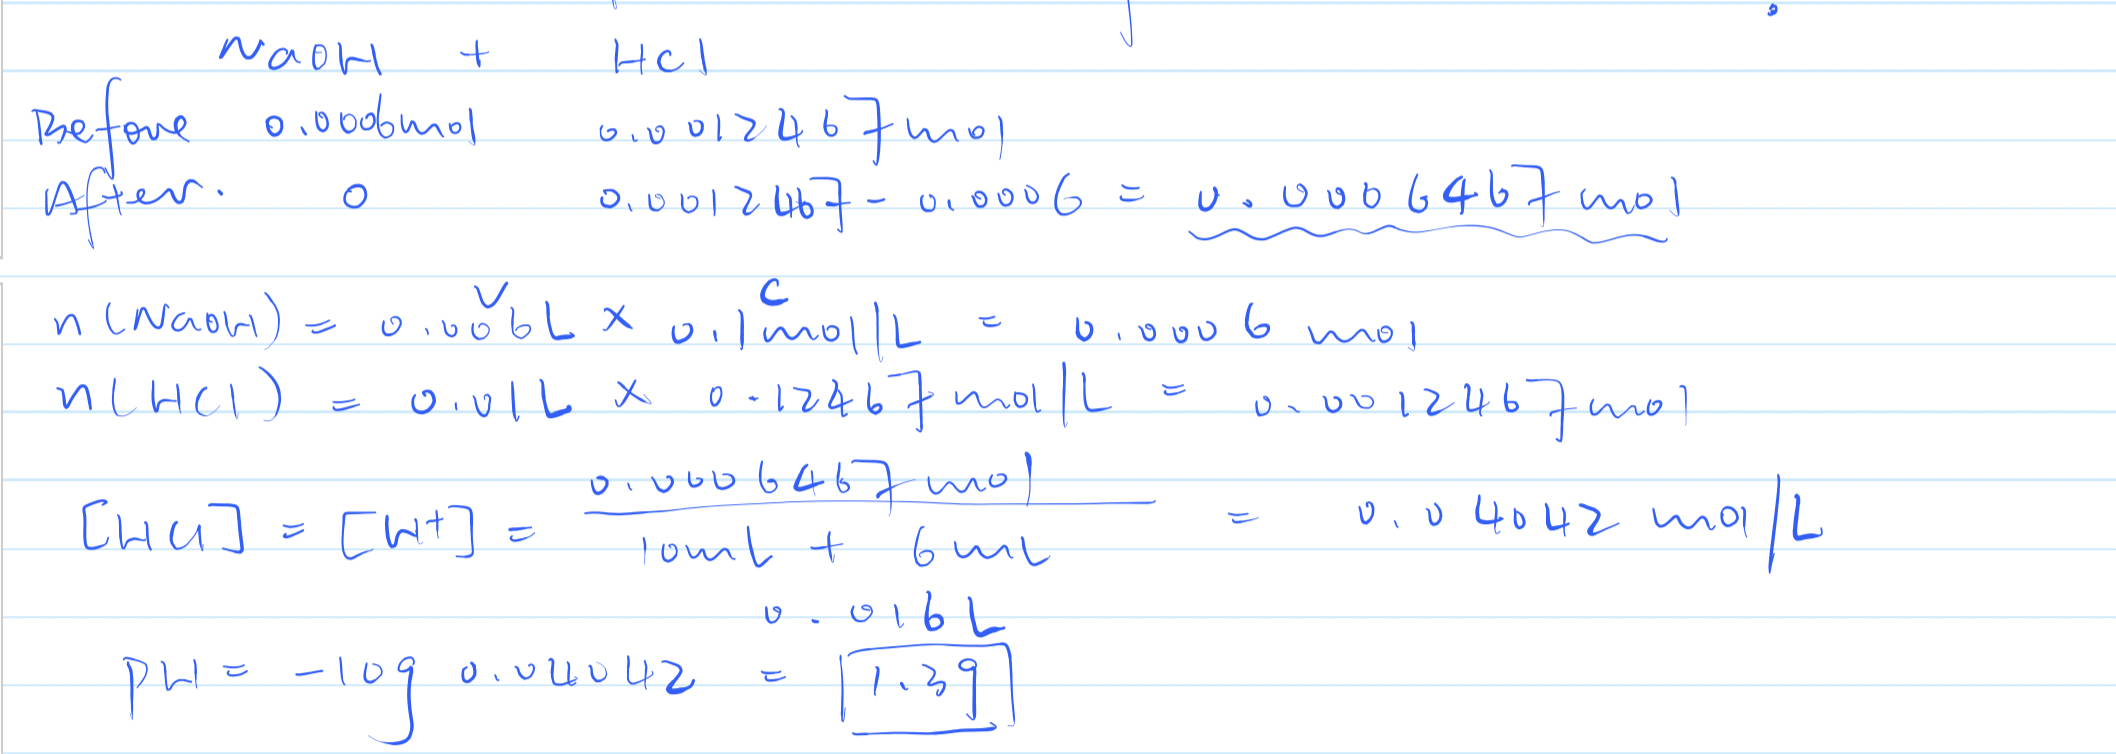 NaOH + HCl
Before 0.0006mol 0.0012467mol
After. 0 0.0012467 - 0.0006 = 0.0006467mol
V C
n(NaOH) = 0.006L × 0.1mol/L = 0.0006 mol
n(HCl) = 0.01L × 0.12467mol/L = 0.0012467mol
0.0006467mol
[HCl] = [H+] = = 0.04042 mol/L
10mL + 6mL
0.016L
PH = -log 0.04042 = 1.39